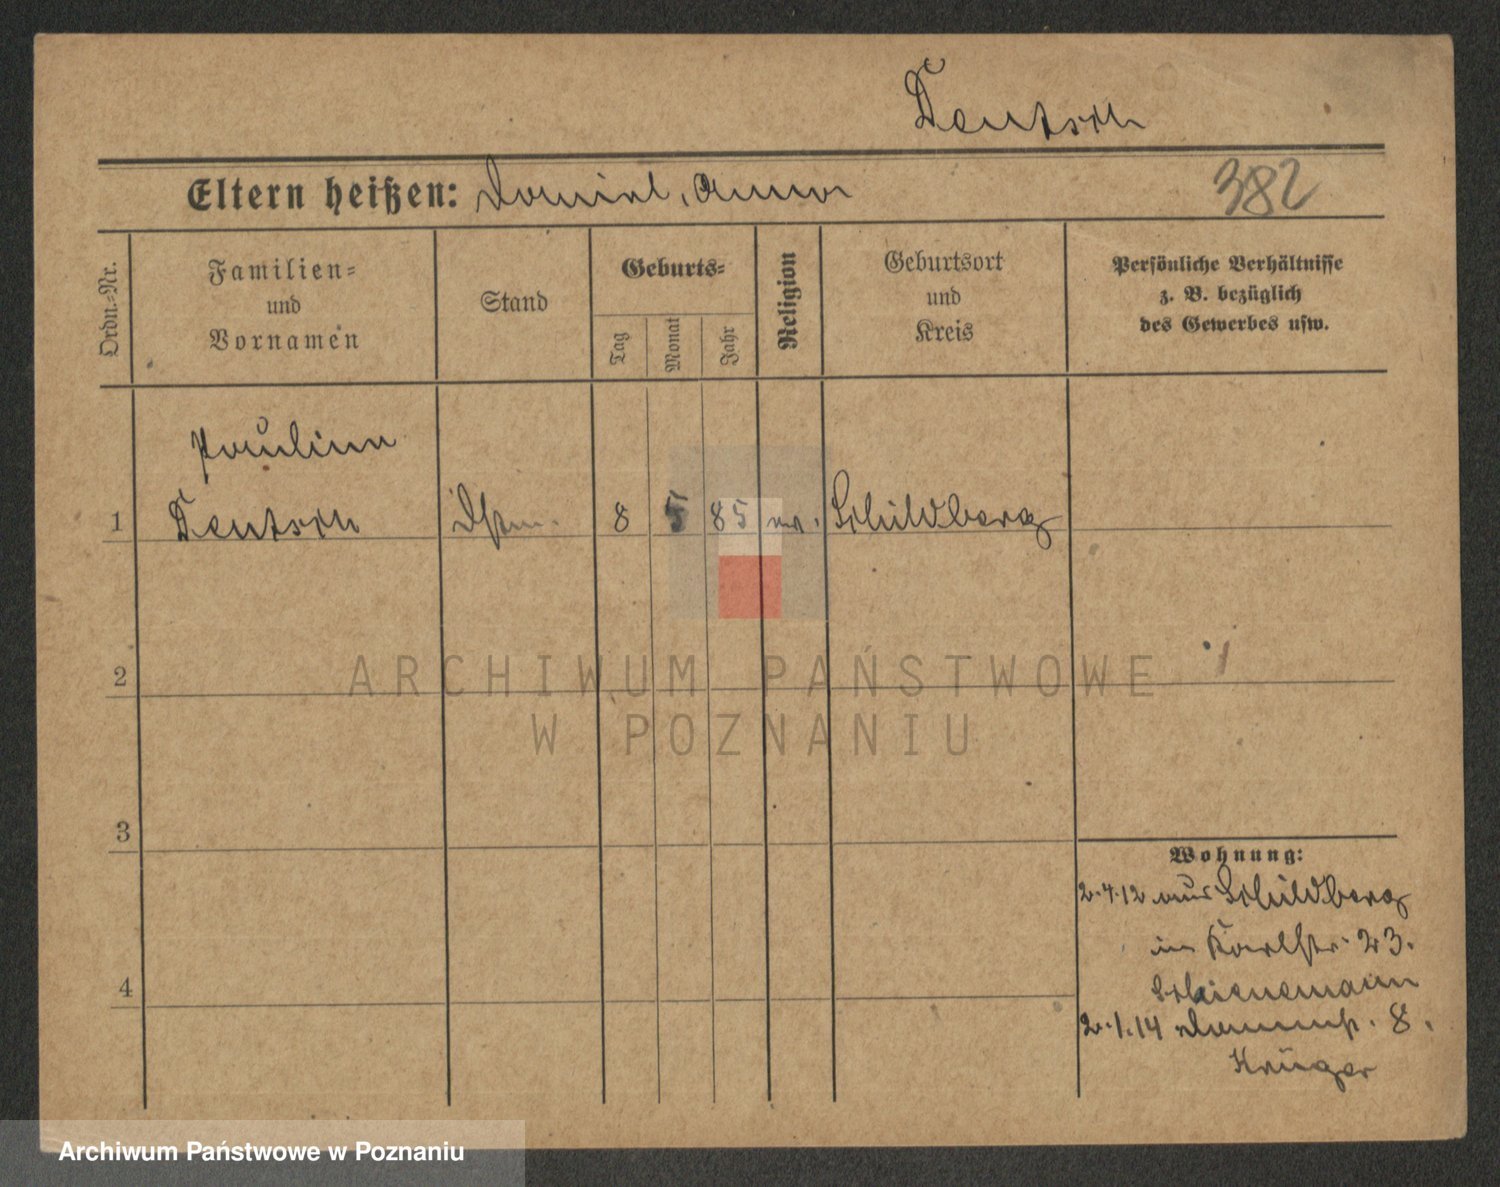 Deutsch
Eltern heißen: Daniel, Anna
382
Ordn.-Nr.
Familien-
und
Vornamen
Stand
Geburts-
Tag
Monat
Jahr
Religion
Geburtsort
und
Kreis
Persönliche Verhältnisse
z. B. bezüglich
des Gewerbes usw.
Pauline
1 Deutsch Dstm. 8 5 85 ev. Schildberg
2
ARCHIWUM PAŃSTWOWE
W POZNANIU
3
Wohnung:
2.4.12 aus Schildberg
in Karlstr. 23.
4
Schienemann
2.1.14 8.
Krüger
Archiwum Państwowe w Poznaniu